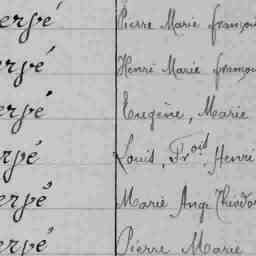 erpé Pierre Marie françois
erpé Henri Marie françois
erpé Eugène, Marie
erpé Louis, Frois, Henri
erpé Marie Ange Théodor
erpé Pierre Marie